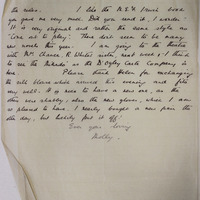 the rules. I like the M.E.H. Lynch book
you gave me very much. Did you read it, I wonder?
It is very original and rather the same style as
"Love at to play". There don't seem to be many
new novels this year. I am going to the theatre
with Mr Chance R. Whites sister, next week; I think
to see the Mikado as the D'Oyly Carte Company is
here. Please thank Helen for exchanging
the silk blouse which arrived this evening and fits
very well. It is nice to have a new one, as the
blue was shabby, also the new gloves, which I am
so pleased to have. I nearly bought a new pair the
other day, but luckily put it off.
Ever your loving
Molly